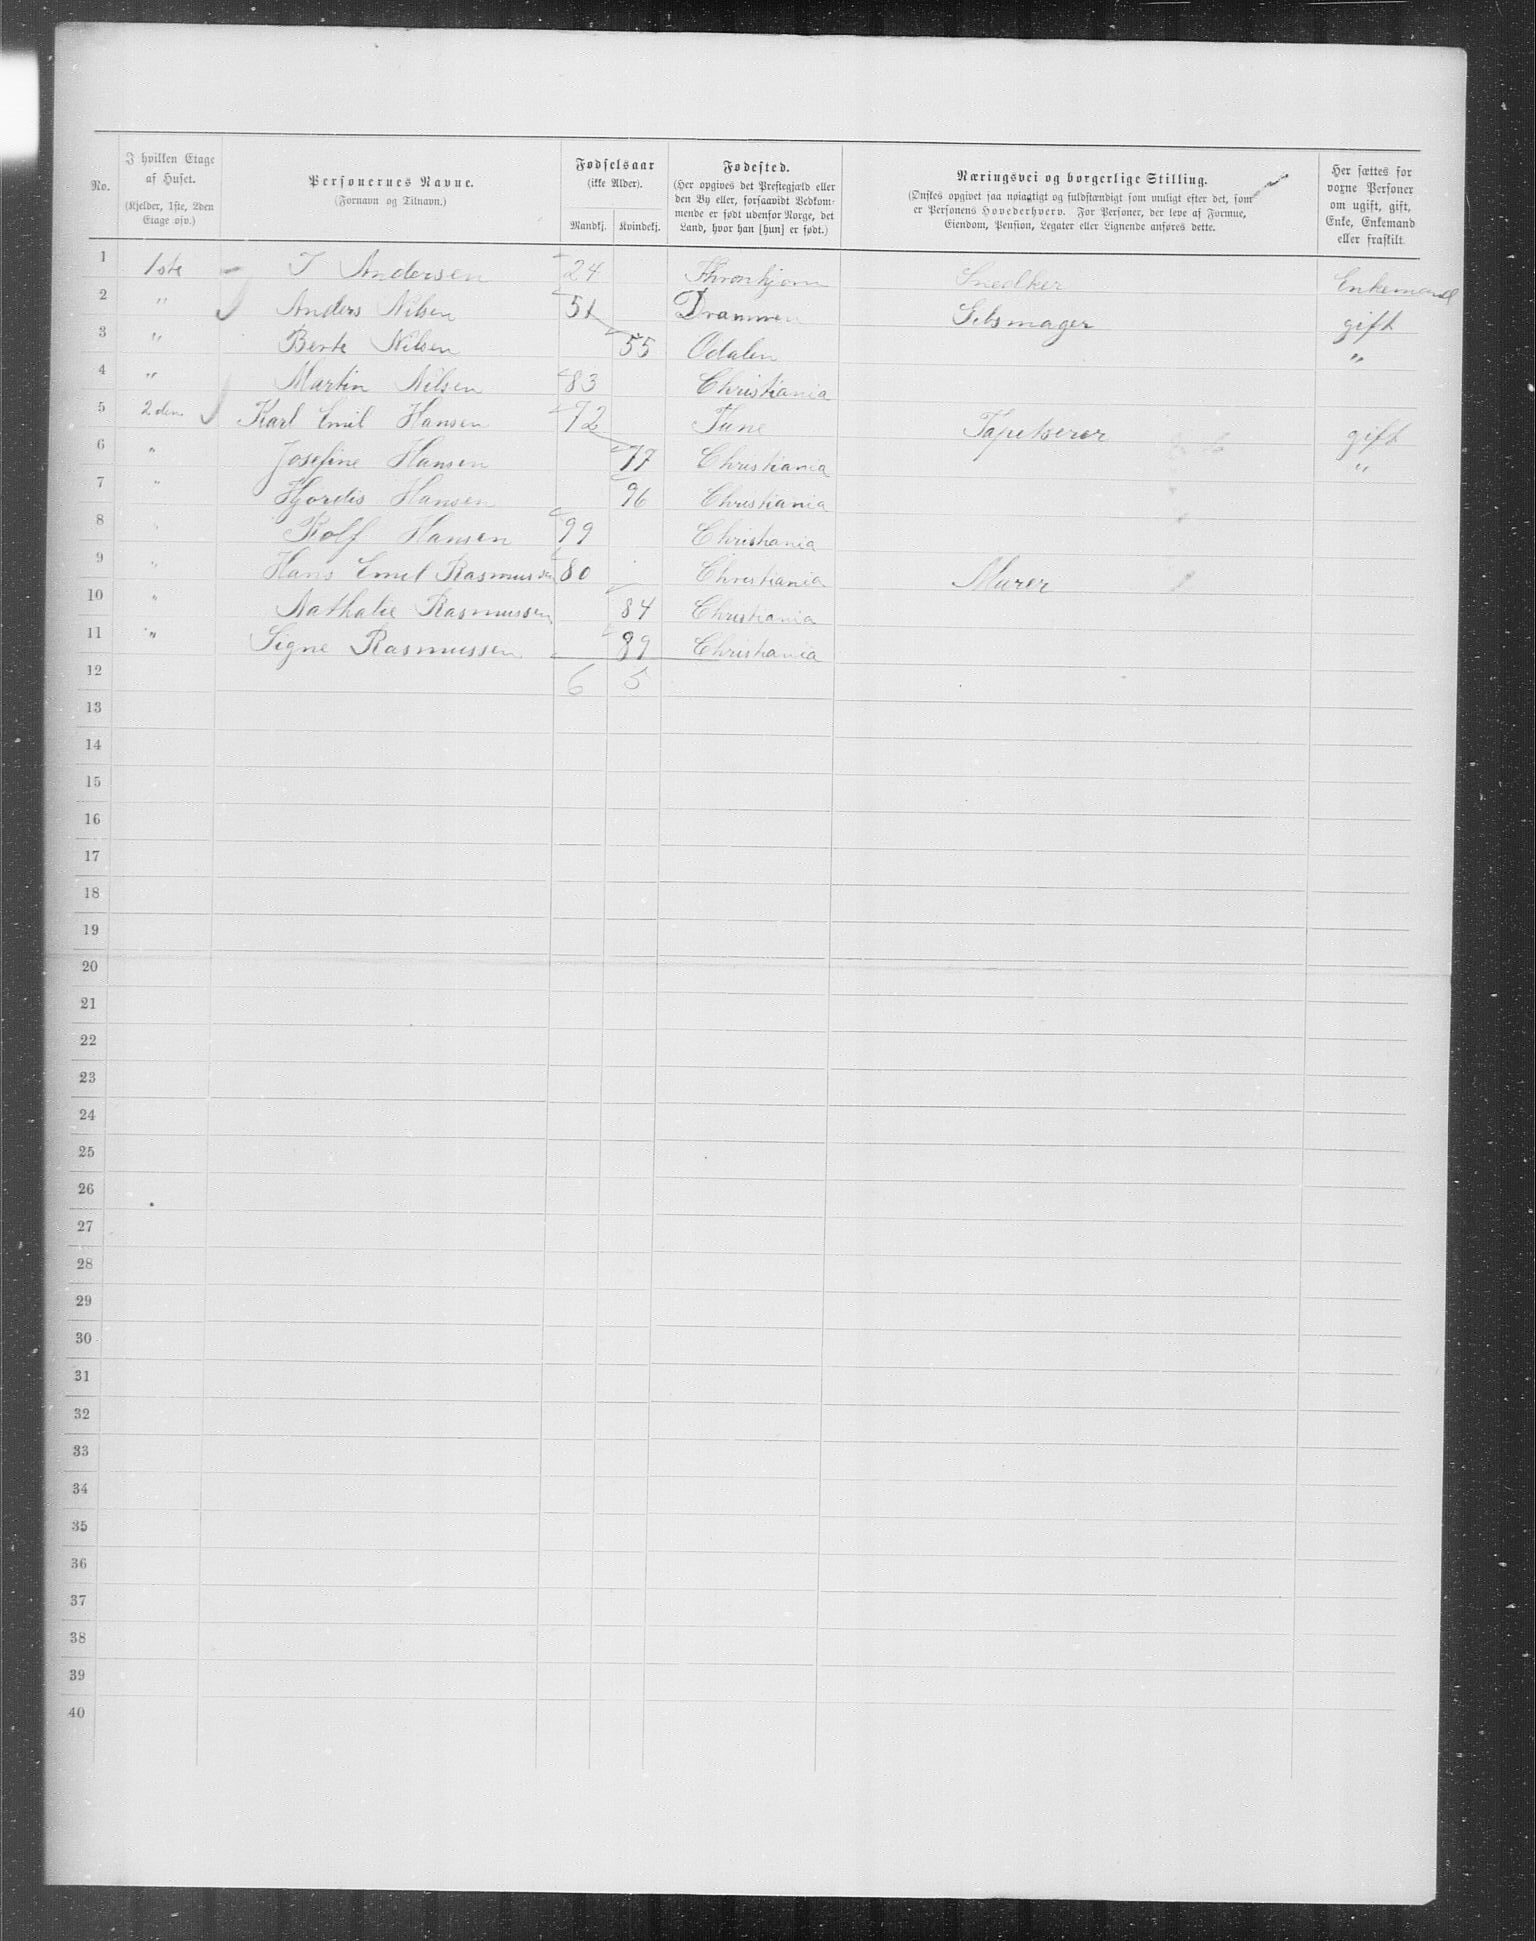 No.
I hvilken Etage
af Huset.
(Kjelder, 1ste, 2den
Etage osv.)
Personernes Navne.
(Fornavn og Tilnavn.)
Fødselsaar
(ikke Alder).
Mandkj. Kvindekj.
Fødested.
(Her opgives det Prestegjæld eller
den By eller, forsaavidt Vedkom-
mende er født udenfor Norge, det
Land, hvor han [hun] er født.)
Næringsvei og borgerlige Stilling.
(Ønskes opgivet saa nøiagtigt og fuldstændigt som muligt efter det, som
er Personens Hovederhverv. For Personer, der leve af Formue,
Eiendom, Pension, Legater eller Lignende anføres dette.
Her sættes for
voxne Personer
om ugift, gift,
Enke, Enkemand
eller fraskilt.
1 1ste Andersen 24 Thronhjem Snedker Enkemand
2 " Anders Nilsen 51 Drammen gift
3 " Berte Nilsen 55 Odalen "
4 " Martin Nilsen 83 Christiania
5 2den Karl Emil Hansen 72 Tune Tapetserer gift
6 " Josefine Hansen 77 Christiania "
7 " Hjordis Hansen 96 Christiania
8 " Rolf Hansen 99 Christiania
9 " Hans Emil Rasmussen 80 Christiania Murer
10 " Nathalie Rasmussen 84 Christiania
11 " Signe Rasmussen 89 Christiania
12 6 5
13
14
15
16
17
18
19
20
21
22
23
24
25
26
27
28
29
30
31
32
33
34
35
36
37
38
39
40